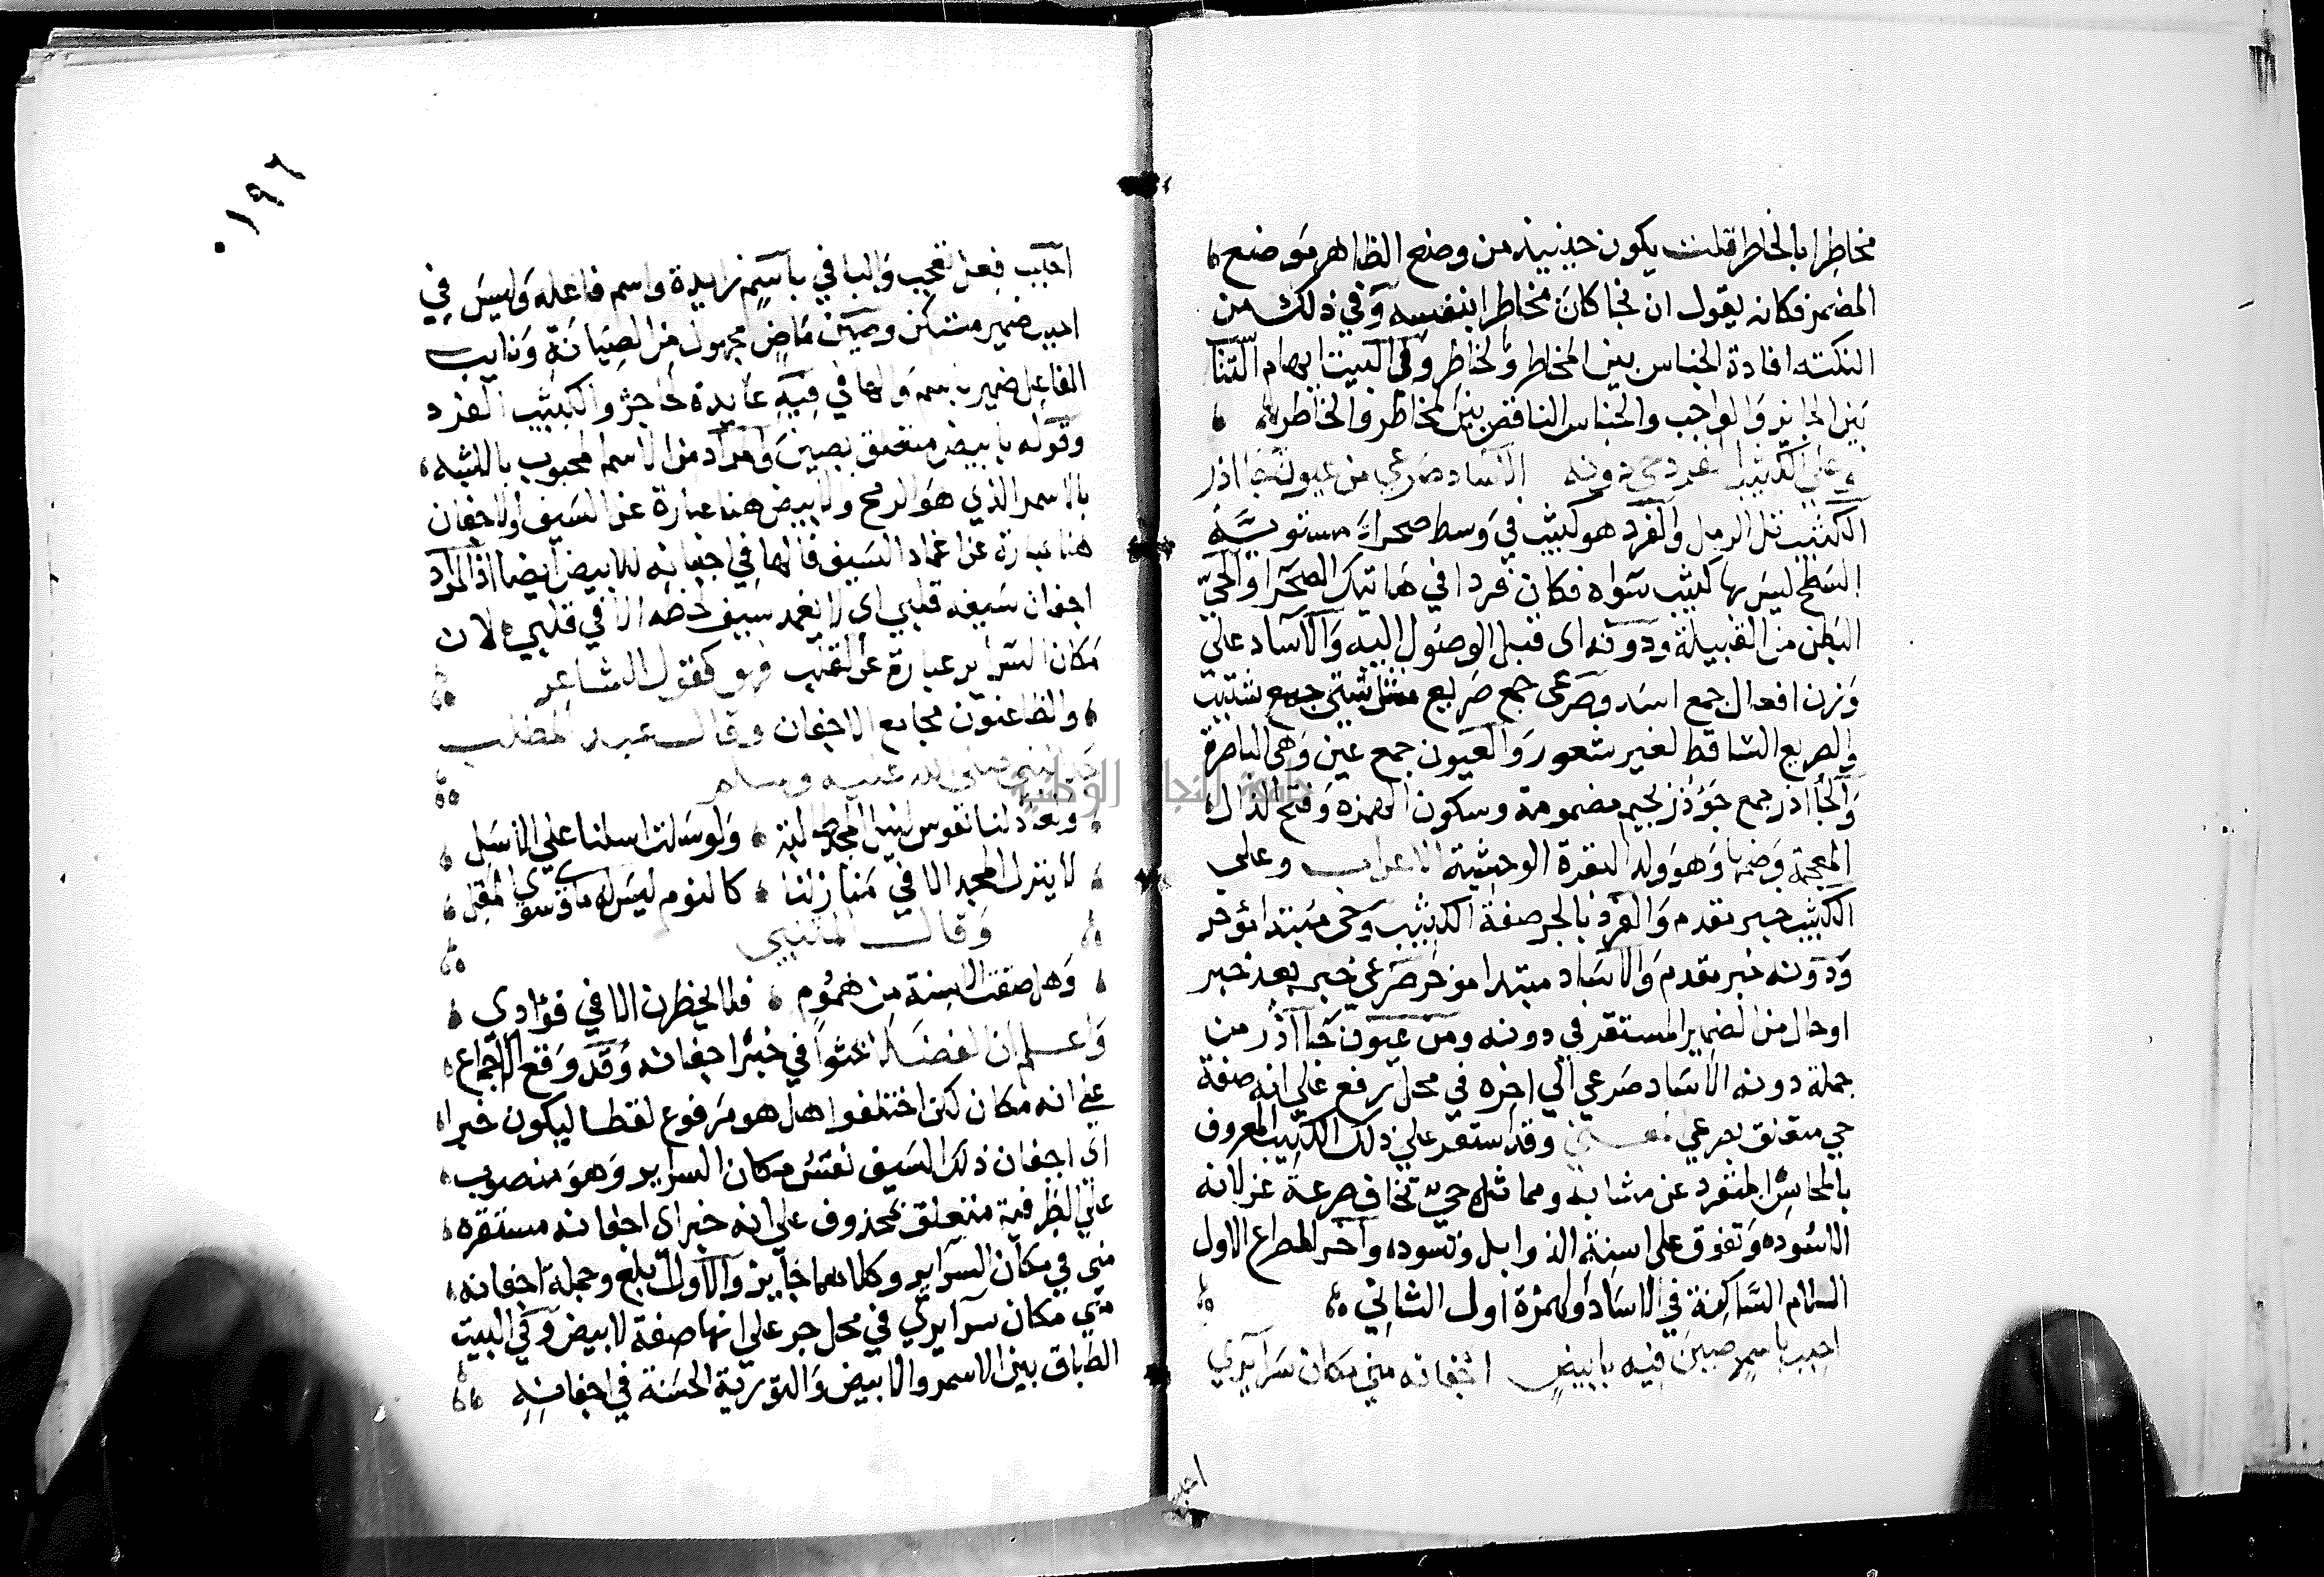 مخاطرا بالخاطر قلت يكون حينيذ من وضع الظاهر موضع
المضمر فكانه يقول ان نجا كان مخاطرا بنفسه وفي ذلك من
النكته افادة الجناس بين المخاطر والخاطر وفي البيت ايهام التنا
بين الجايز والواجب والجناس الناقص بين المخاطر والخاطر
وعلى الكثيب الفرد حي دونه الآساد صرعى من عيون جآاذر
الكثيب تل الرمل والفرد هو كثيب في وسط صحراء مستوية
السطح ليس بها كثيب سواه فكان فردا في هاتيك الصحرا والحي
البطن من القبيلة ودونه اى قبل الوصول اليه والآساد علي
وزن افعال جمع اسد وصرعى جمع صريع كشتى جمع شتيت
والصريع الساقط لغير شعور والعيون جمع عين وهي الباصرة
والجآاذر جمع جؤذر بجيم مضمومة وسكون الهمزه وفتح الذال
المعجمة وضمها وهو ولد البقرة الوحشية الاعراب وعلى
الكثيب خبر مقدم والفرد بالجر صفة الكثيب وحى مبتدا مؤخر
ودونه خبر مقدم والاساد مبتدا موخر صرعي خبر بعد خبر
اوحال من الضمير المستقر في دونه ومن عيون جآاذر من
جملة دونه الاساد صرعي الي اخره في محل رفع علي انه صفة
حي متعلق بصرعي وقد استقر علي ذلك الكثيب المعروف
بالمحاسن المنفرد عن مشابه ومماثل حي تخاف صرعة غزلانه
الاسوده وتفوق على اسنة الذوابل وتسوده وآخر المصراع الاول
اللام الساكنة في الاساد والهمزة اول الثاني
احبب باسمر صين فيه بابيض اجفانه مني مكان سرايري
احبب
١٩٦
احبب فعل تعجب والبا في باسمر زايدة واسم فاعله وليس في
احبب ضمير مستكن وصين ماض مجهول من الصيانة ونايب
الفاعل ضمير باسمر والها في فيه عايدة لحاجر والكثيب الفرد
وقوله بابيض متعلق بصين والمراد من الاسمر المحبوب بالشبه
بالاسمر الذي هو الرمح والابيض هنا عبارة عن السيف والاجفان
هنا عبارة عن اغماد السيف فالها في اجفانه للابيض ايضا اذ المراد
اجفان سيفه قلبي اى لا يغمد سيف لحظه الا في قلبي لان
مكان السراير عبارة عن القلب فهو كقول الشاعر
والظاعنون مجامع الاجفان وقال عبد المطلب
جد النبي صلى الله عليه وسلم
لنا نفوس لنيل المجد ولو سالت اسلنا على الاسل
لا ينزل المجد الا في منازلنا كالنوم ليس له ماوى سوى المقل
وقال المتنبي
وهل صقت الاسنة من هموم فلا يخطرن الا في فؤادي
واعلم ان الفضلا اختوا في خبر اجفانه وقد وقع الاجماع
علي انه مكان لكن اختلفوا هل هو مرفوع لفظا ليكون خبرا
اى اجفان ذلك السيف نفس مكان السراير وهو منصوب
علي الظرفية متعلق بمحذوف علي انه خبر اى اجفانه مستقره
مني في مكان السراير وكلاهما جايز والاول ابلغ وجملة اجفانه
مني مكان سرايري في محل جر علي انها صفة لابيض وفي البيت
الطباق بين الاسمر والابيض والتورية الحسنة في اجفانه
جامعة النجاح الوطنية